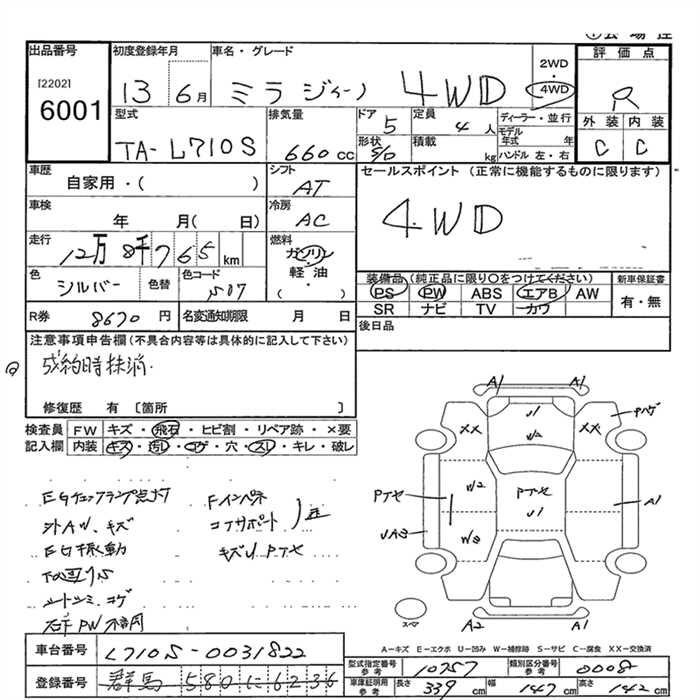 出品番号
[2202]
6001
初度登録年月
13 6月
車名・グレード
ミラ ジィーノ 4WD
2WD
・
4WD
評価点
R
外装 内装
C C
型式
TA-L710S
排気量
660cc
ドア
5
定員
4人
ディーラー・並行
モデル年式 年
形状
5/D
積載
kg
ハンドル 左・右
車歴
自家用・( )
シフト
AT
セールスポイント(正常に機能するものに限ります)
4WD
車検
年 月( 日)
冷房
AC
走行
12万8千765km
燃料
ガソリン
・
軽油
・
( )
色
シルバー
色替
色コード
S07
装備品(純正品に限り○をつけてください)
PS PW ABS エアB AW
SR ナビ TV カワ
新車保証書
有・無
R券 8670円
名変通知期限 月 日
後日品
注意事項申告欄(不具合内容等は具体的に記入して下さい)
成約時抹消.
修復歴 有 [箇所 ]
検査員
記入欄
FW キズ・飛石・ヒビ割・リペア跡・×要
内装 キズ・汚レ・コゲ・穴・スレ・キレ・破レ
EGチェックランプ点灯
外AW.キズ
EG振動
シートシミ.コゲ
右手PW不良
Fインパネ
コアサポート
キズU Pアセ
A1 A1
U1
W2
XX XX
Pハゲ
W2
Pアセ
U1
Pアセ
A1
UA3
W3
A2 A1
スペア
A-キズ E-エクボ U-凹み W-補修跡 S-サビ C-腐食 XX-交換済
車台番号
L710S-0031822
登録番号
群馬 580に6236
型式指定番号
参考
10757
類別区分番号
参考
0008
車庫証明用
参考
長さ 339cm
幅 147cm
高さ 142cm